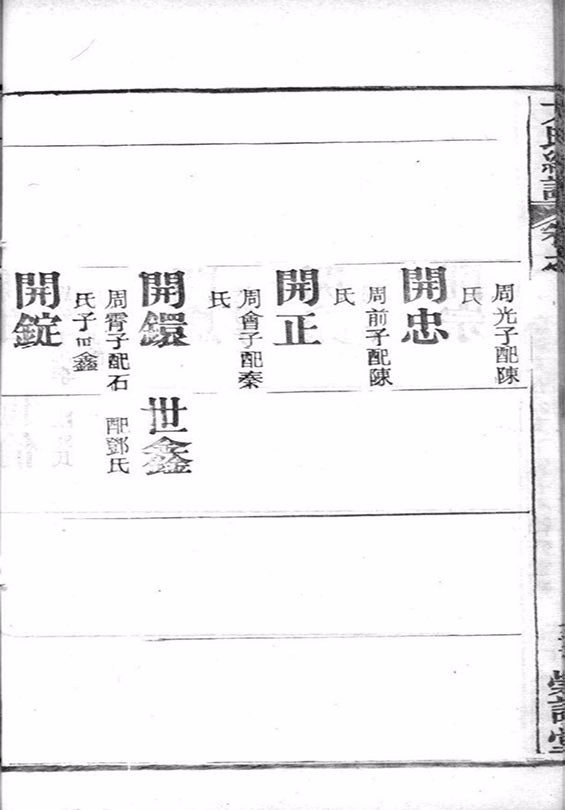 周光子配陳
氏
開忠
周前子配陳
氏
開正
周會子配秦
氏
開鐶
周霄子配石
氏子世鑫
開錠
世鑫
配鄧氏